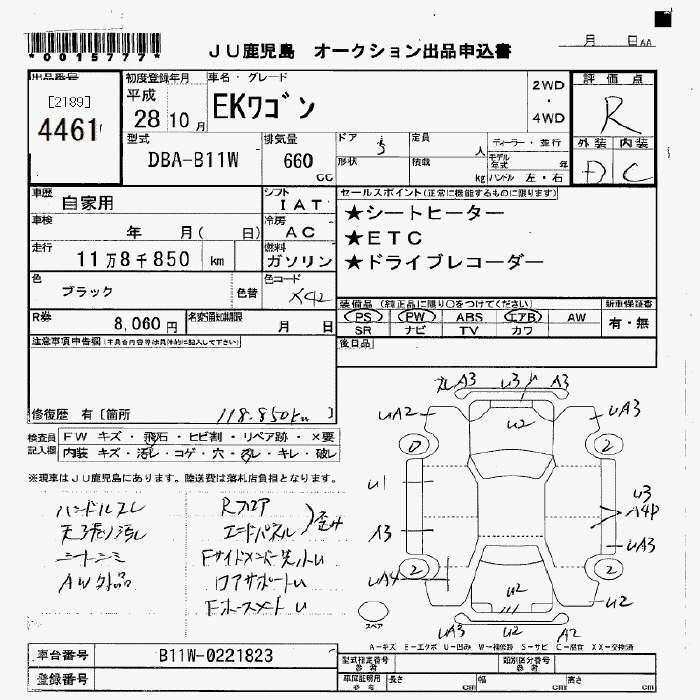 *0015777*
JU鹿児島 オークション出品申込書
月 日
出品番号
[2189]
4461
初度登録年月
平成
28 10 月
車名・グレード
EKワゴン
2WD
・
4WD
評価点
R
外装 内装
D C
型式
DBA-B11W
排気量
660
cc
ドア
5
形状
定員
人
積載
kg
ディーラー・並行
モデル年式 年
ハンドル 左・右
車歴
自家用
シフト
IAT
車検
年 月( 日)
冷房
AC
走行
11万8千850 km
燃料
ガソリン
色
ブラック
色替
色コード
X42
セールスポイント(正常に機能するものに限ります)
★シートヒーター
★ETC
★ドライブレコーダー
装備品 (純正品に限り○をつけてください)
PS PW ABS エアB AW
SR ナビ TV カワ
新車保証書
有・無
R券
8,060 円
名変通知期限
月 日
後日品
注意事項申告欄
修復歴 有 [箇所 ]
118.850km
検査員
記入欄
FW キズ・飛石・ヒビ割・リペア跡・×要
内装 キズ・汚レ・コゲ・穴・スレ・キレ・破レ
※現車はJU鹿児島にあります。陸送費は落札店負担となります。
ハンドルスレ
天張り汚レ
シートシミ
AW外品
Rフロア
エンドパネル
歪み
Fサイドメンバー先ットU
ロアサポートU
Fホースメント U
A3 U3 A3
UA2 U2 UA3
2 2
U1
U3
A4P
A3 UA3
2 2
UA4 U2 U2
UA3 U2 A2
スペア
A-キズ E-エクボ U-凹み W-補修跡 S-サビ C-腐食 XX-交換済
車台番号
B11W-0221823
登録番号
型式指定番号
参考
類別区分番号
参考
車庫証明用
参考
長さ cm
幅 cm
高さ cm